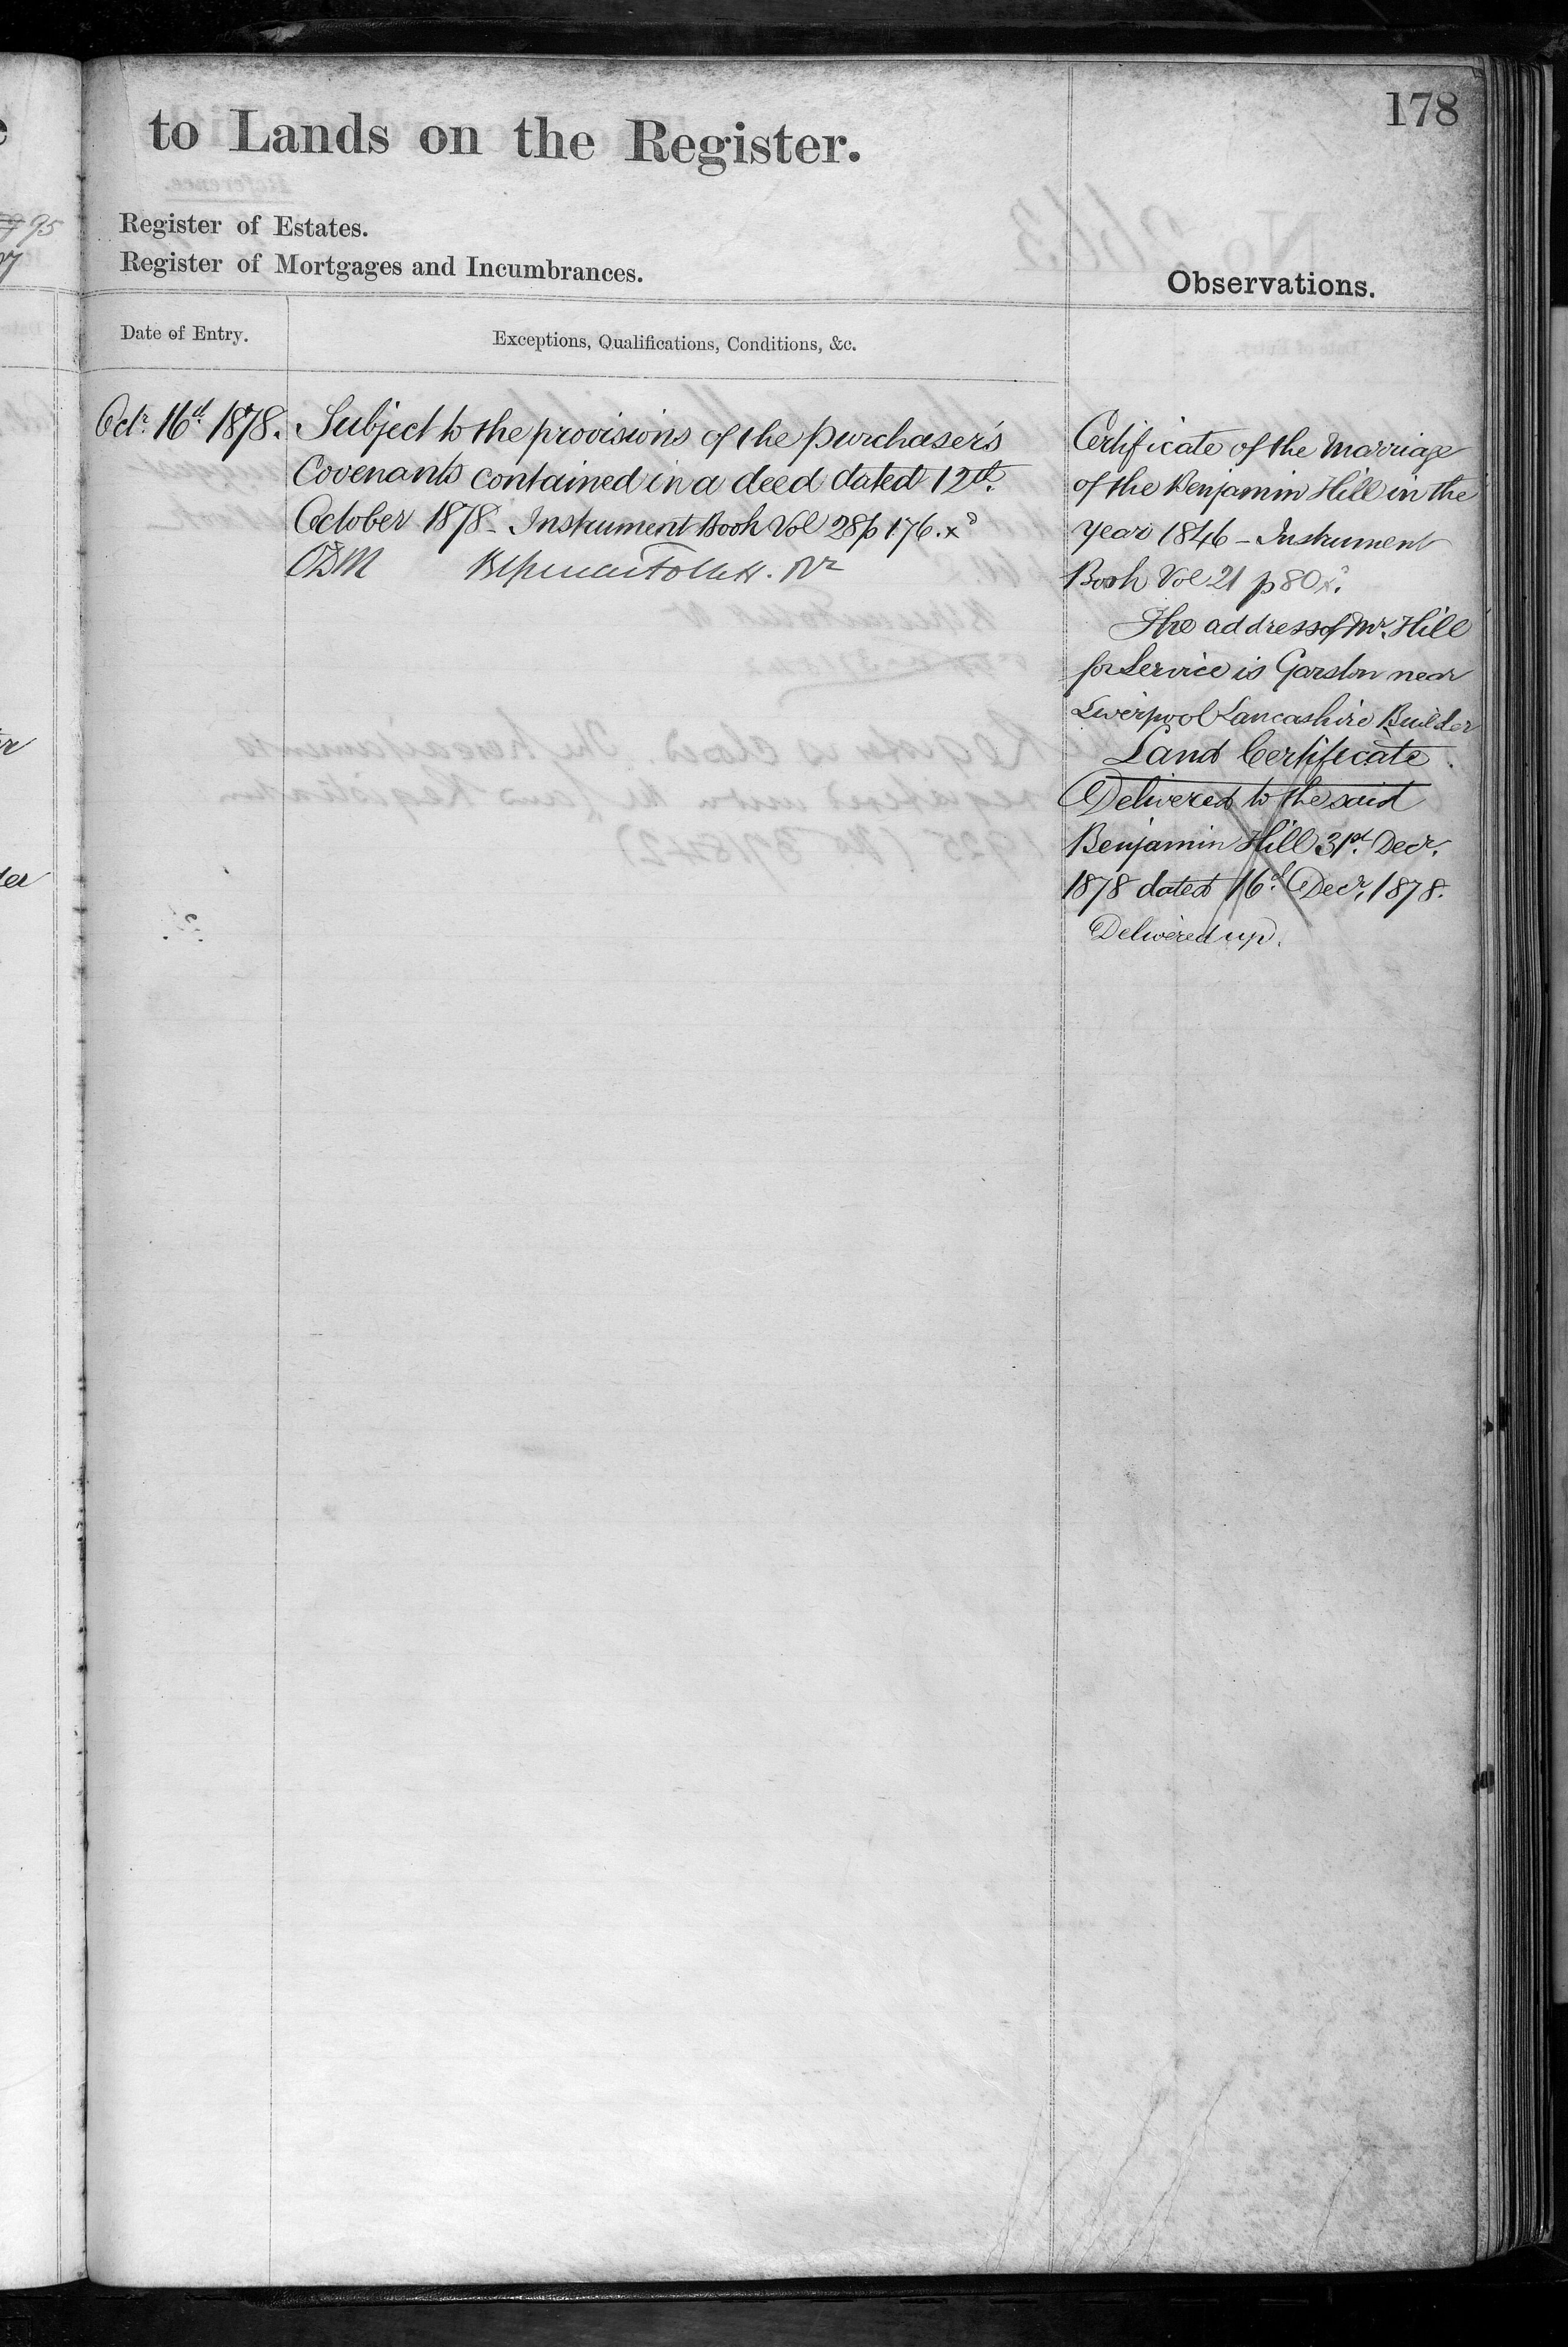 178
to Lands on the Register.
Register of Estates.
Register of Mortgages and Incumbrances.
Observations.
Date of Entry.
Exceptions, Qualifications, Conditions, &c.
Octr. 16d. 1878.
Subject to the provisions of the purchaser's
Covenants contained in a deed dated 12th.
October 1878 - Instrument Book Vol 28 p 176.
Certificate of the Marriage
of the Benjamin Hill in the
year 1846 - Instrument
Book Vol 21 p 80
The address of Mr. Hill
for Service is Garston near
Liverpool Lancashire Builder
Land Certificate
Delivered to the said
Benjamin Hill 31st. Decr.
1878 dated 16d. Decr. 1878.
Delivered up.